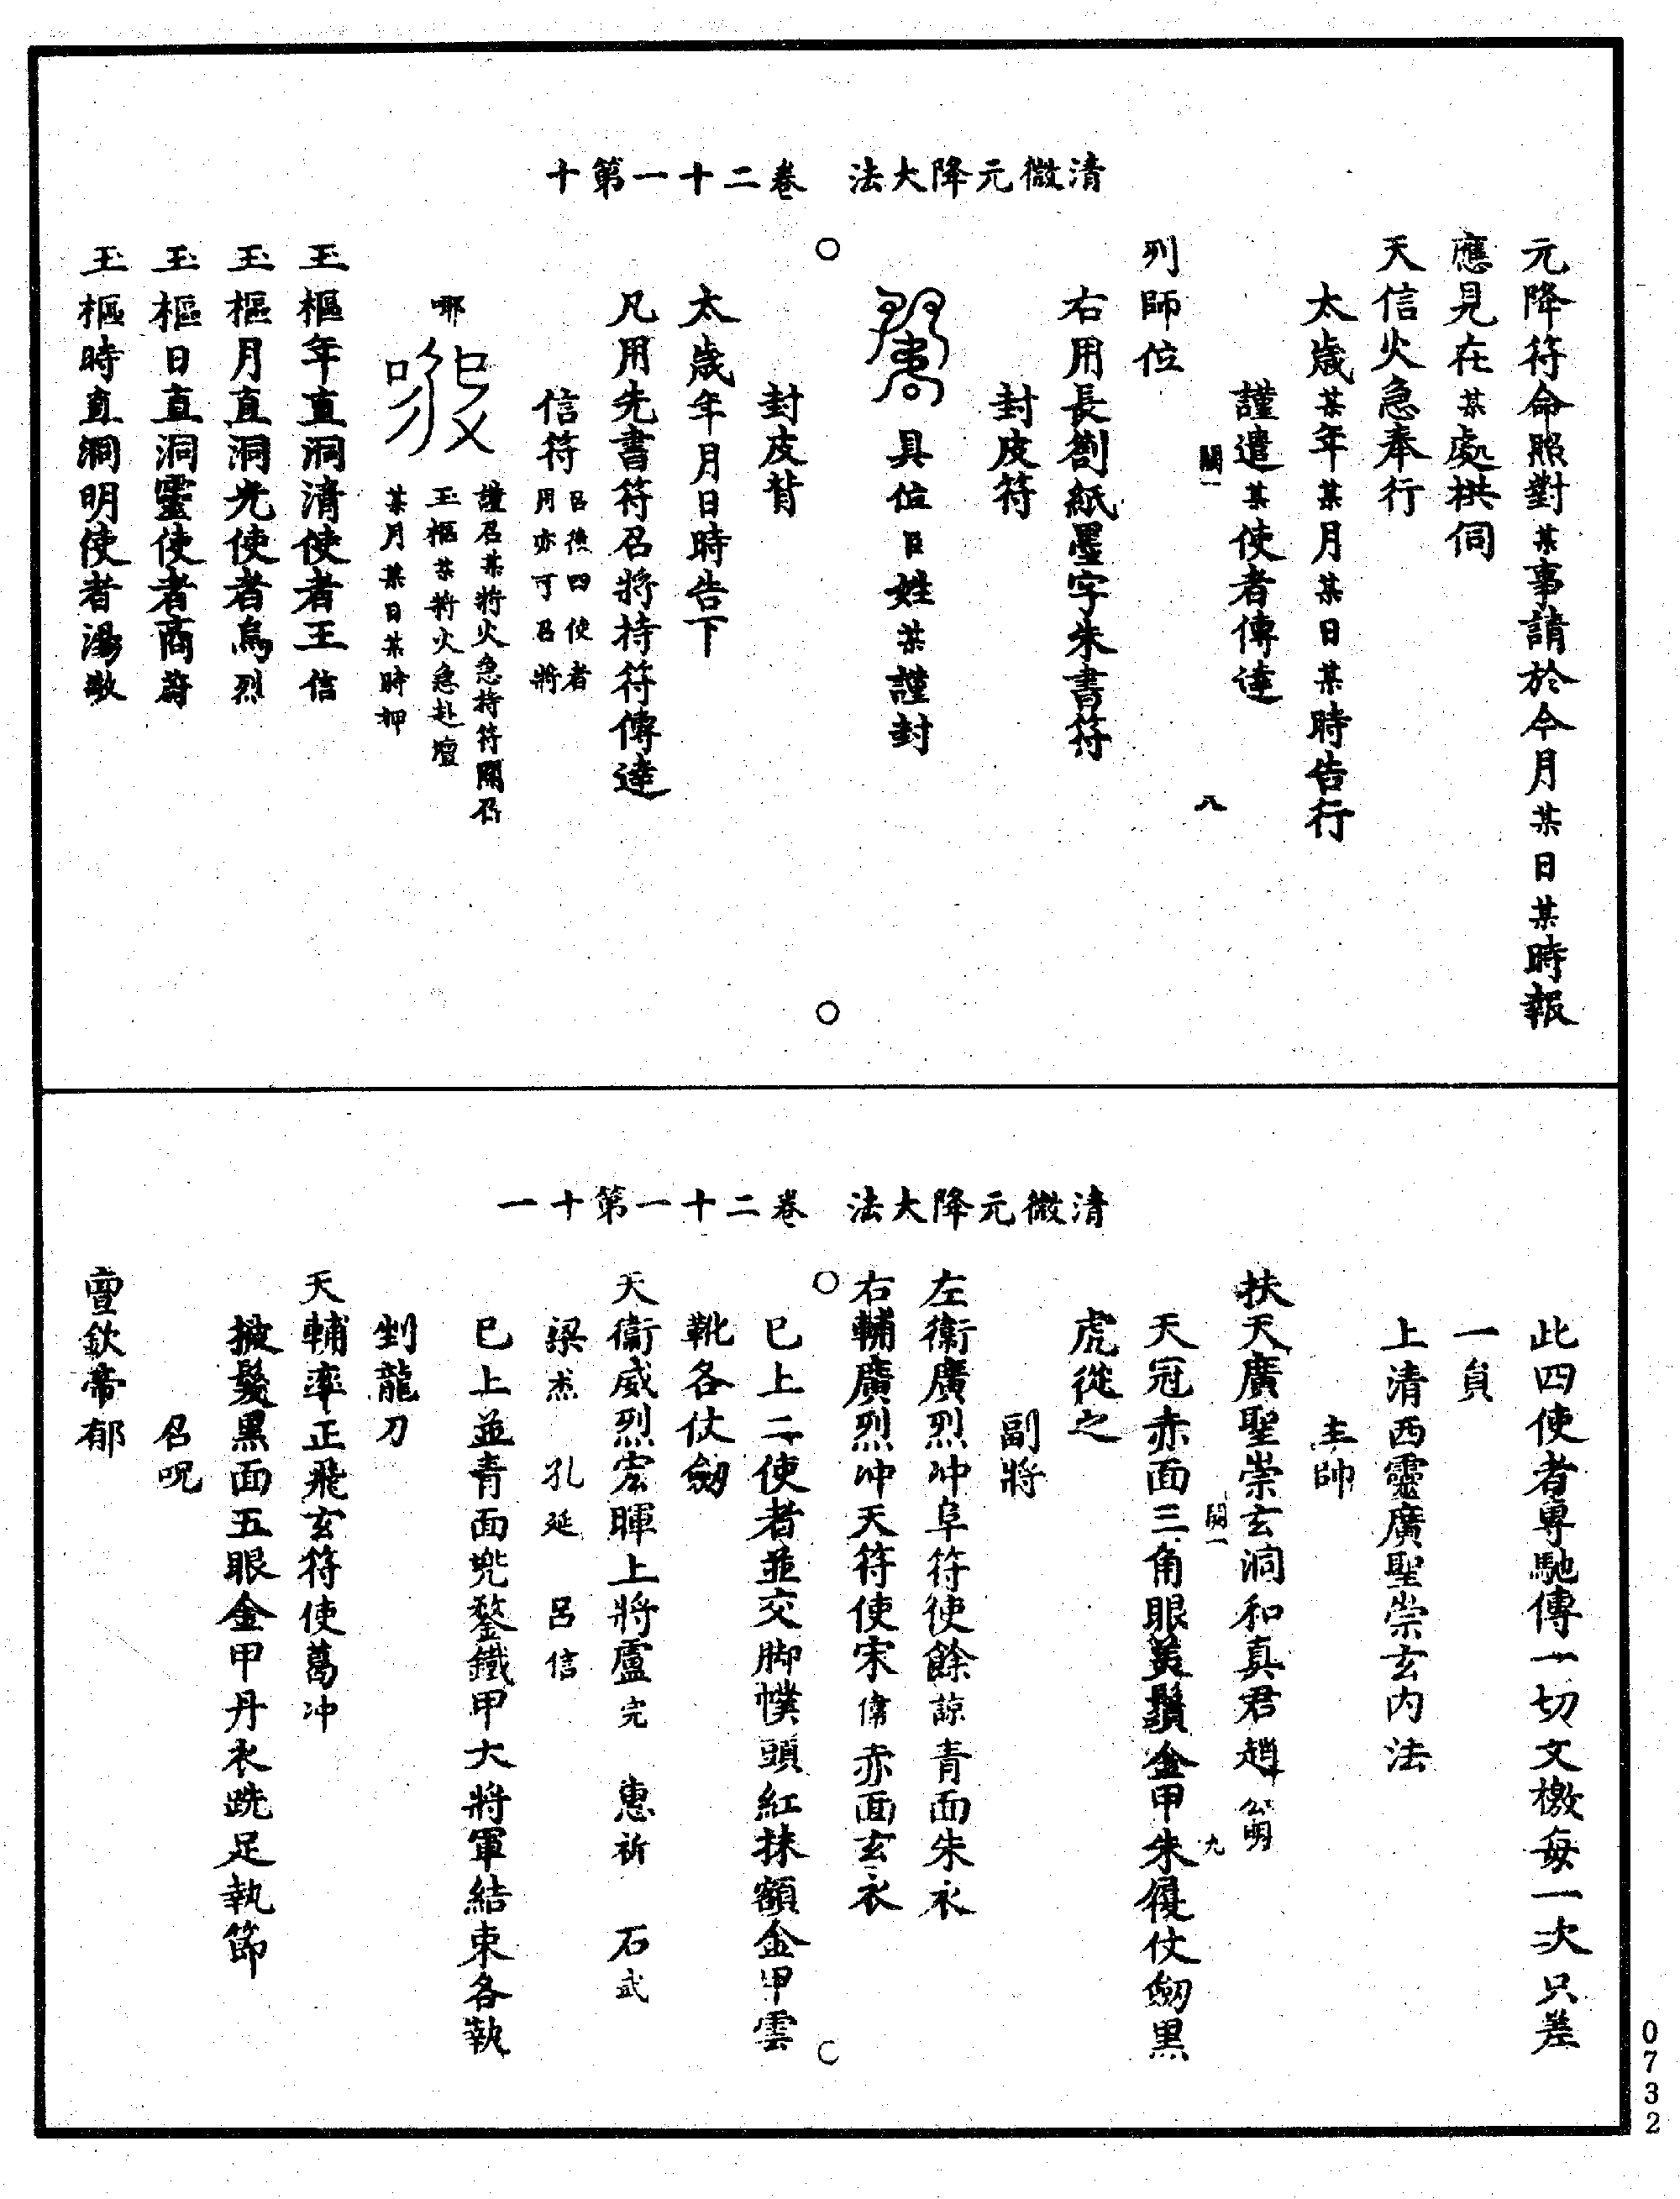 清微元降大法　卷二十一第十
元降符命照對某事請於今月某日某時報
應見在某處拱伺
天信火急奉行
太歲某年某月某日某時告行
謹遣某使者傳達
關一　八
列師位
右用長劄紙墨字朱書符
封皮符
具位臣姓某謹封
封皮背
太歲年月日時告下
凡用先書符召將持符傳達
信符召後四使者
用亦可召將
謹召某將火急持符關召
玉樞某將火急赴壇
某月某日某時押
玉樞年直洞清使者王信
玉樞月直洞光使者烏烈
玉樞日直洞靈使者商蔚
玉樞時直洞明使者湯敏
清微元降大法　卷二十一第十一
此四使者專馳傳一切文檄每一次只差
一員
上清西靈廣聖崇玄内法
主帥
扶天廣聖崇玄洞和真君趙公明
關一　九
天冠赤面三角眼黃鬚金甲朱履仗劒黑
虎從之
副將
左衛廣烈冲阜符使餘諒青面朱衣
右輔廣烈冲天符使宋傭赤面玄衣
已上二使者並交脚幞頭紅抹額金甲雲
靴各仗劒
天衛威烈宏暉上將盧完　惠祈　石武
梁杰　孔延　呂信
已上並青面兜鍪鐵甲大將軍結束各執
剉龍刀
天輔率正飛玄符使葛冲
披髮黑面五眼金甲丹衣跣足執節
召呪
欽帝郁
0732